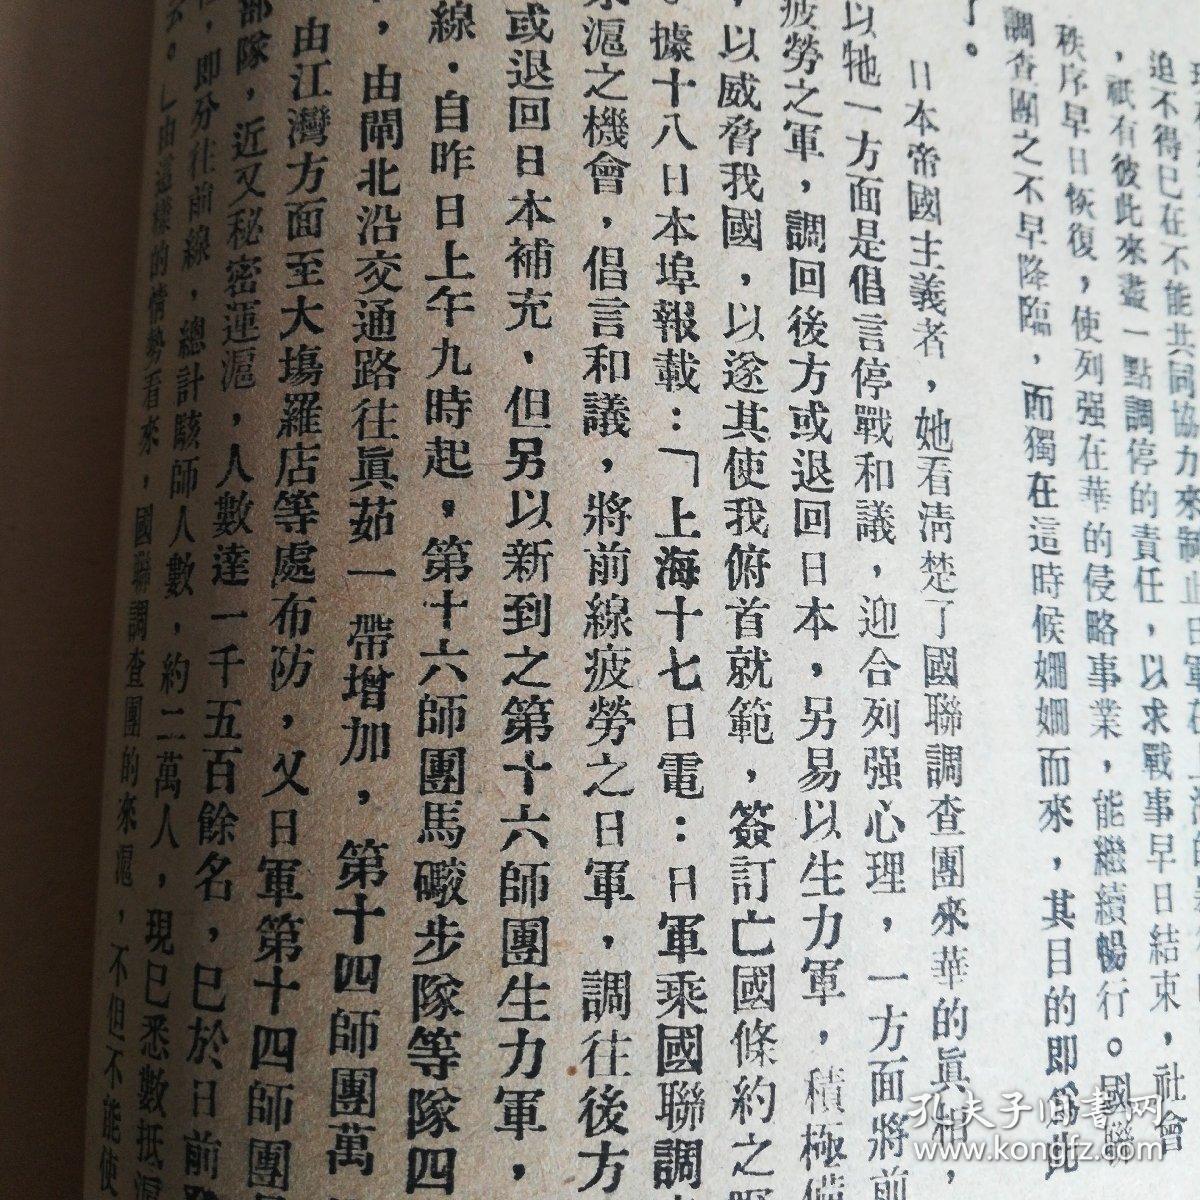 迫不得已在不能共同協力來制止日軍
，祇有彼此來盡一點調停的責任，以求戰事早日結束，社會
秩序早日恢復，使列强在華的侵略事業，能繼續暢行。國聯
調查團之不早降臨，而獨在這時候姍姍而來，其目的即爲此
了。
日本帝國主義者，她看清楚了國聯調查團來華的眞相，
以牠一方面是倡言停戰和議，迎合列强心理，一方面將前
疲勞之軍，調回後方或退回日本，另易以生力軍，積極備
，以威脅我國，以遂其使我俯首就範，簽訂亡國條約之
。據十八日本埠報載：「上海十七日電：日軍乘國聯調
來滬之機會，倡言和議，將前線疲勞之日軍，調往後方
或退回日本補充，但另以新到之第十六師團生力軍，
線，自昨日上午九時起，第十六師團馬礮步隊等隊四
，由閘北沿交通路往眞茹一帶增加，第十四師團萬
由江灣方面至大塲羅店等處布防，又日軍第十四師團
部隊，近又秘密運滬，人數達一千五百餘名，已於日前
，即分往前線，總計該師人數，約二萬人，現已悉數抵滬
云。」由這樣的情勢看來，國聯調查團的來滬，不但不能使
孔夫子旧书网
www.kongfz.com